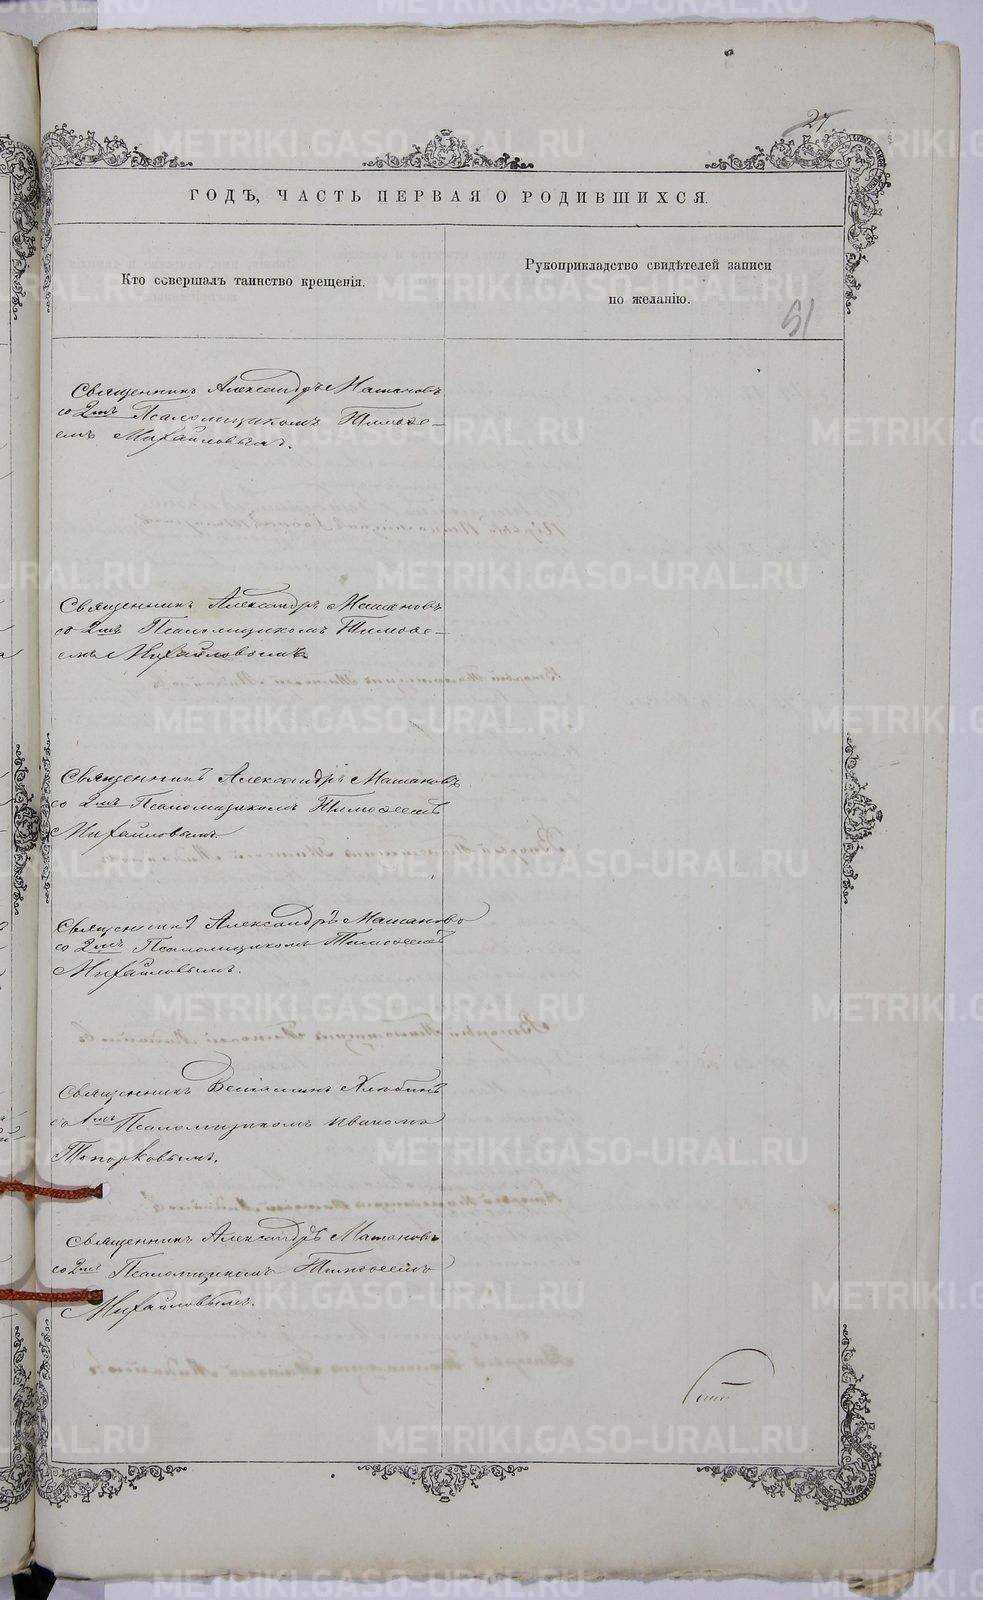 27
ГОДЪ, ЧАСТЬ ПЕРВАЯ О РОДИВШИХСЯ.
Кто совершалъ таинство крещенія.
Рукоприкладство свидѣтелей записи
по желанію.
51
Священникъ Александръ Машановъ
со 2мъ Псаломщикомъ Тимоѳе-
емъ Михайловымъ.
Священникъ Александръ Машановъ
со 2мъ Псаломщикомъ Тимоѳе-
емъ Михайловымъ
Священникъ Александръ Машановъ
со 2мъ Псаломщикомъ Тимоѳеемъ
Михайловымъ.
Священникъ Александръ Машановъ
со 2мъ Псаломщикомъ Тимоѳеемъ
Михайловымъ.
Священникъ Веніаминъ Хлѣбинъ
со 1мъ Псаломщикомъ Иваномъ
Топорковымъ.
Священникъ Александръ Машановъ
со 2мъ Псаломщикомъ Тимоѳеемъ
Михайловымъ.
METRIKI.GASO-URAL.RU